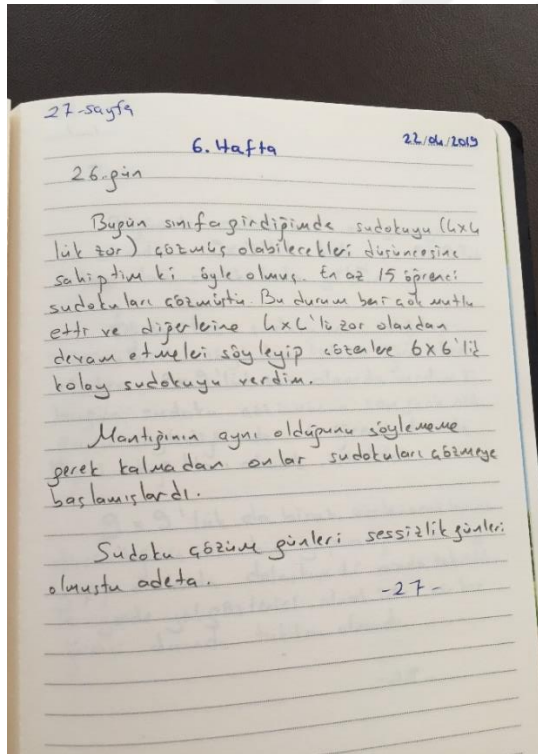 27-sayfa
6. Hafta
22/04/2019
26.gün
Bugün sınıfa girdiğimde sudokuyu (4x4
lük zor) çözmüş olabilecekleri düşüncesine
sahiptim ki öyle olmuş. En az 15 öğrenci
sudokuları çözmüştü. Bu durum beni çok mutlu
etti ve diğerlerine 4x4'lü zor olandan
devam etmeleri söyleyip çözenlere 6x6'lık
kolay sudokuyu verdim.
Mantığının aynı olduğunu söylememe
gerek kalmadan onlar sudokuları çözmeye
başlamışlardı.
Sudoku çözüm günleri sessizlik günleri
olmuştu adeta.
-27-